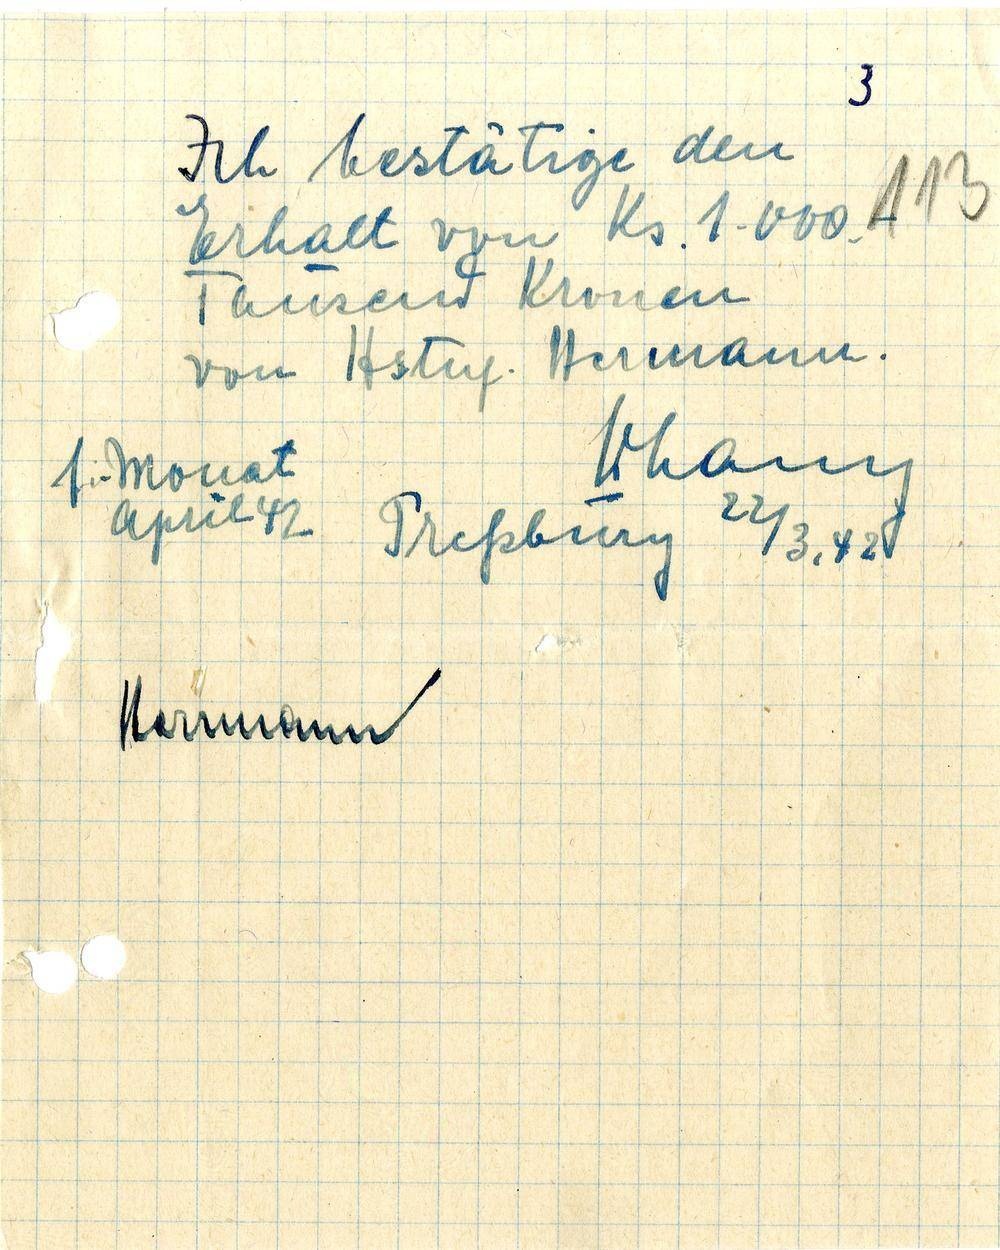 3
Ich bestätige den
113
Erhalt von Ks. 1.000.-
Tausend Kronen
von Hstuf. Herrmann.
f. Monat
April 42
Preßburg 22/3.42
Herrmann